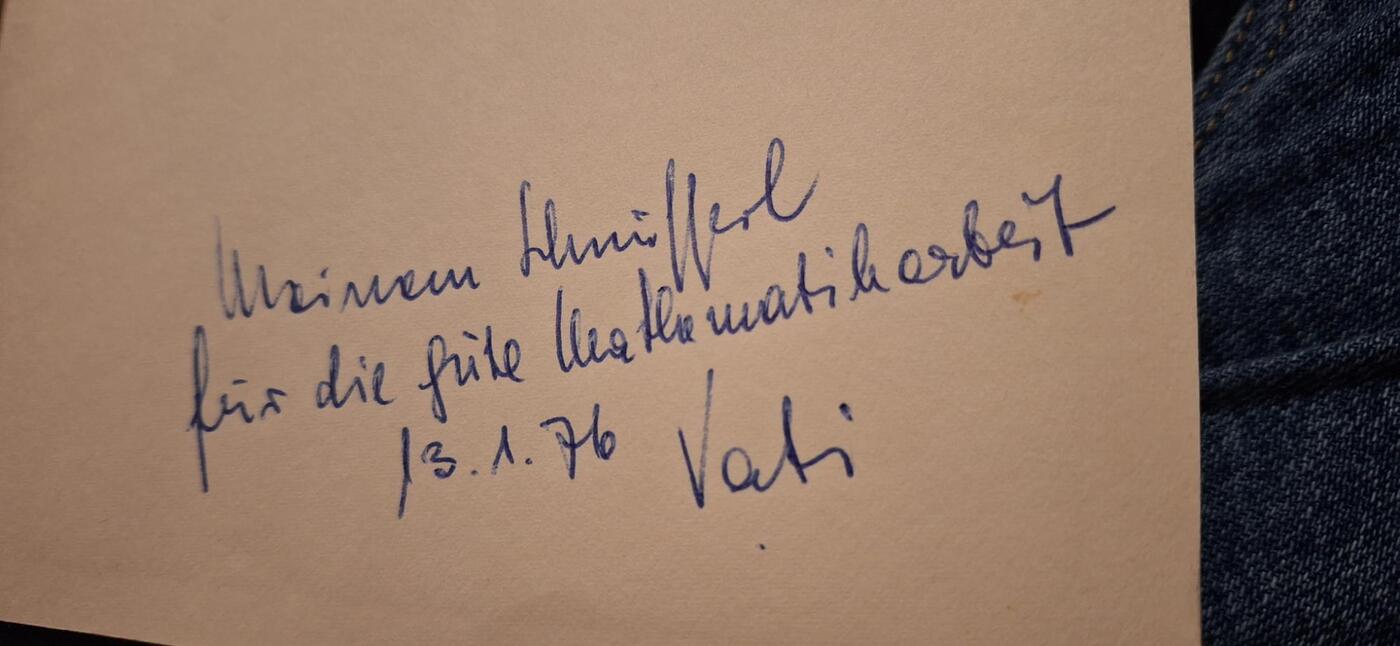 Meinem Schnüfferl
für die gute Mathematikarbeit
13.1.76 Vati